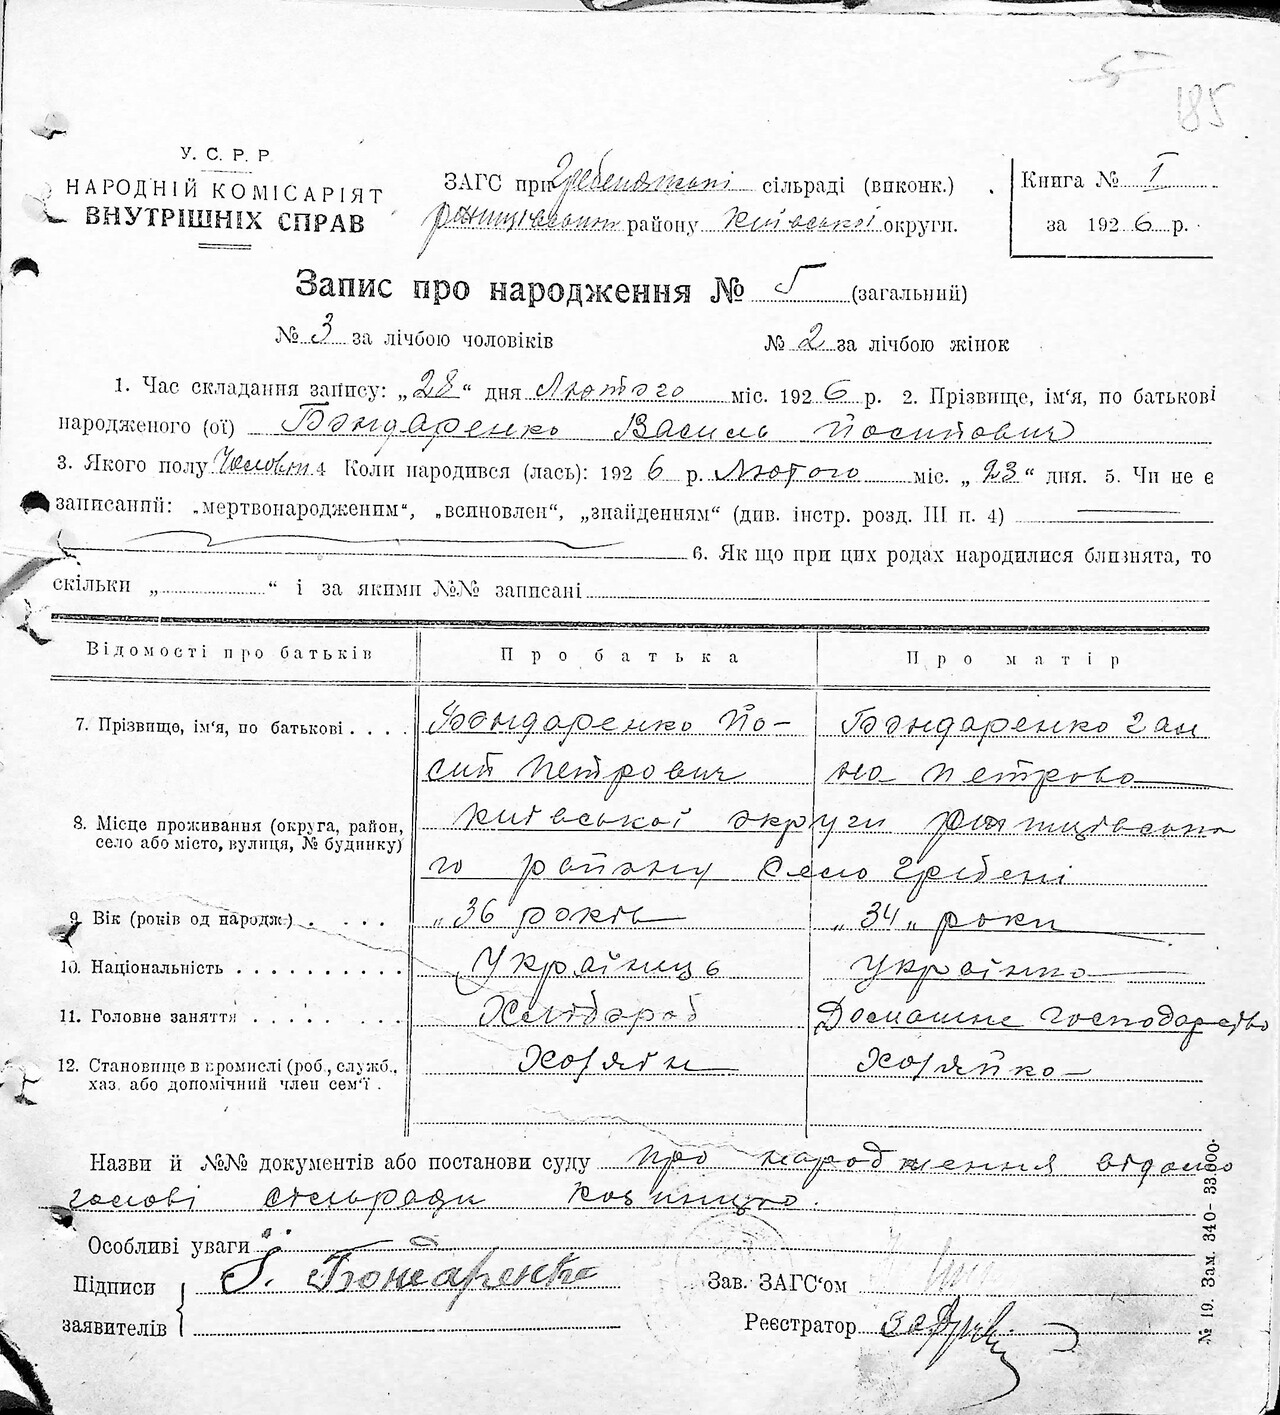 5
185
У. С. Р. Р
НАРОДНІЙ КОМІСАРІЯТ
ВНУТРІШНІХ СПРАВ
ЗАГС при Гребенській сільраді (виконк.)
району Київської округи.
Книга № I
за 1926 р.
Запис про народження № 5 (загальний)
№ 3 за лічбою чоловіків № 2 за лічбою жінок
1. Час складання запису: „28“ дня Лютого міс. 1926 р. 2. Прізвище, ім‘я, по батькові
народженого (ої) Бондаренко Василь Йосипович
3. Якого полу Чоловіч 4 Коли народився (лась): 1926 р. Лютого міс. „23“ дня. 5. Чи не є
записаний: „мертвонародженим“, „всиновлен“, „знайденням“ (див. інстр. розд. III п. 4)
6. Як що при цих родах народилися близнята, то
скільки „ “ і за якими №№ записані
Відомості про батьків Про батька Про матір
7. Прізвище, ім‘я, по батькові . . . . Бондаренко Йо- Бондаренко Ган
сип Петрович на Петрово
8. Місце проживання (округа, район, село або місто, вулиця, № будинку) Київської округи
го району Село Гребені
9. Вік (років од народж.) . . . . „36 років „34„ роки
10. Національність . . . . . . . . . . Українець Українка
11. Головне заняття . . . . . . . . Хлібороб Домашнє господарство
12. Становище в промислі (роб., служб., хаз. або допомічний член сем‘ї . Хозяїн Хозяйка
Назви й №№ документів або постанови суду про народження відомо
голові сільради
Особливі уваги
Підписи Й. Бондаренко Зав. ЗАГС‘ом
заявителів Реєстратор
№ 19. Зам. 340- 33.000.